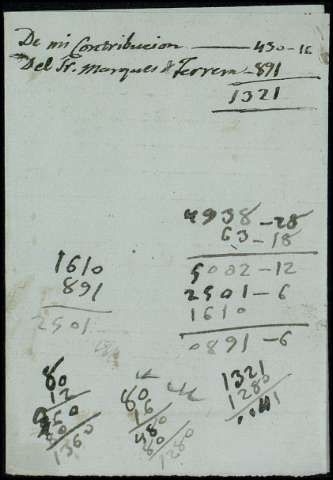 De mi Contribucion — 430-16
Del Sr. Marques de Terrem -891
1321
4938-28
63-18
5002-12
2501-6
1610
0891-6
1610
891
2501
80
17
560
80
1360
80
16
480
80
1280
1321
1280
0041